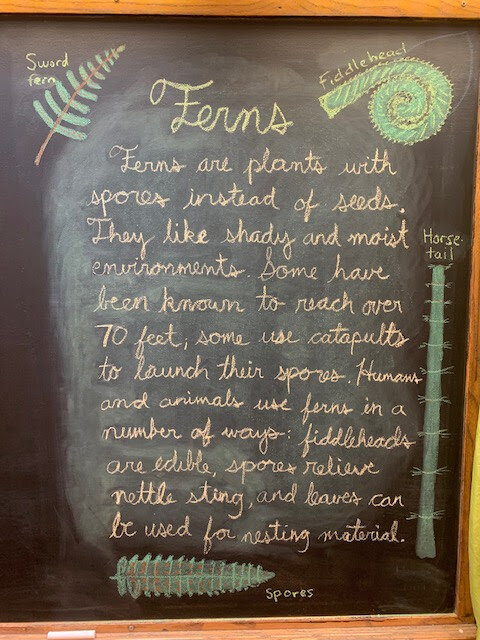 Sword
fern
Fiddlehead
Ferns
Ferns are plants with
spores instead of seeds.
They like shady and moist
environments. Some have
been known to reach over
70 feet; some use catapults
to launch their spores. Humans
and animals use ferns in a
number of ways: fiddleheads
are edible, spores relieve
nettle sting, and leaves can
be used for nesting material.
Horse-
tail
Spores